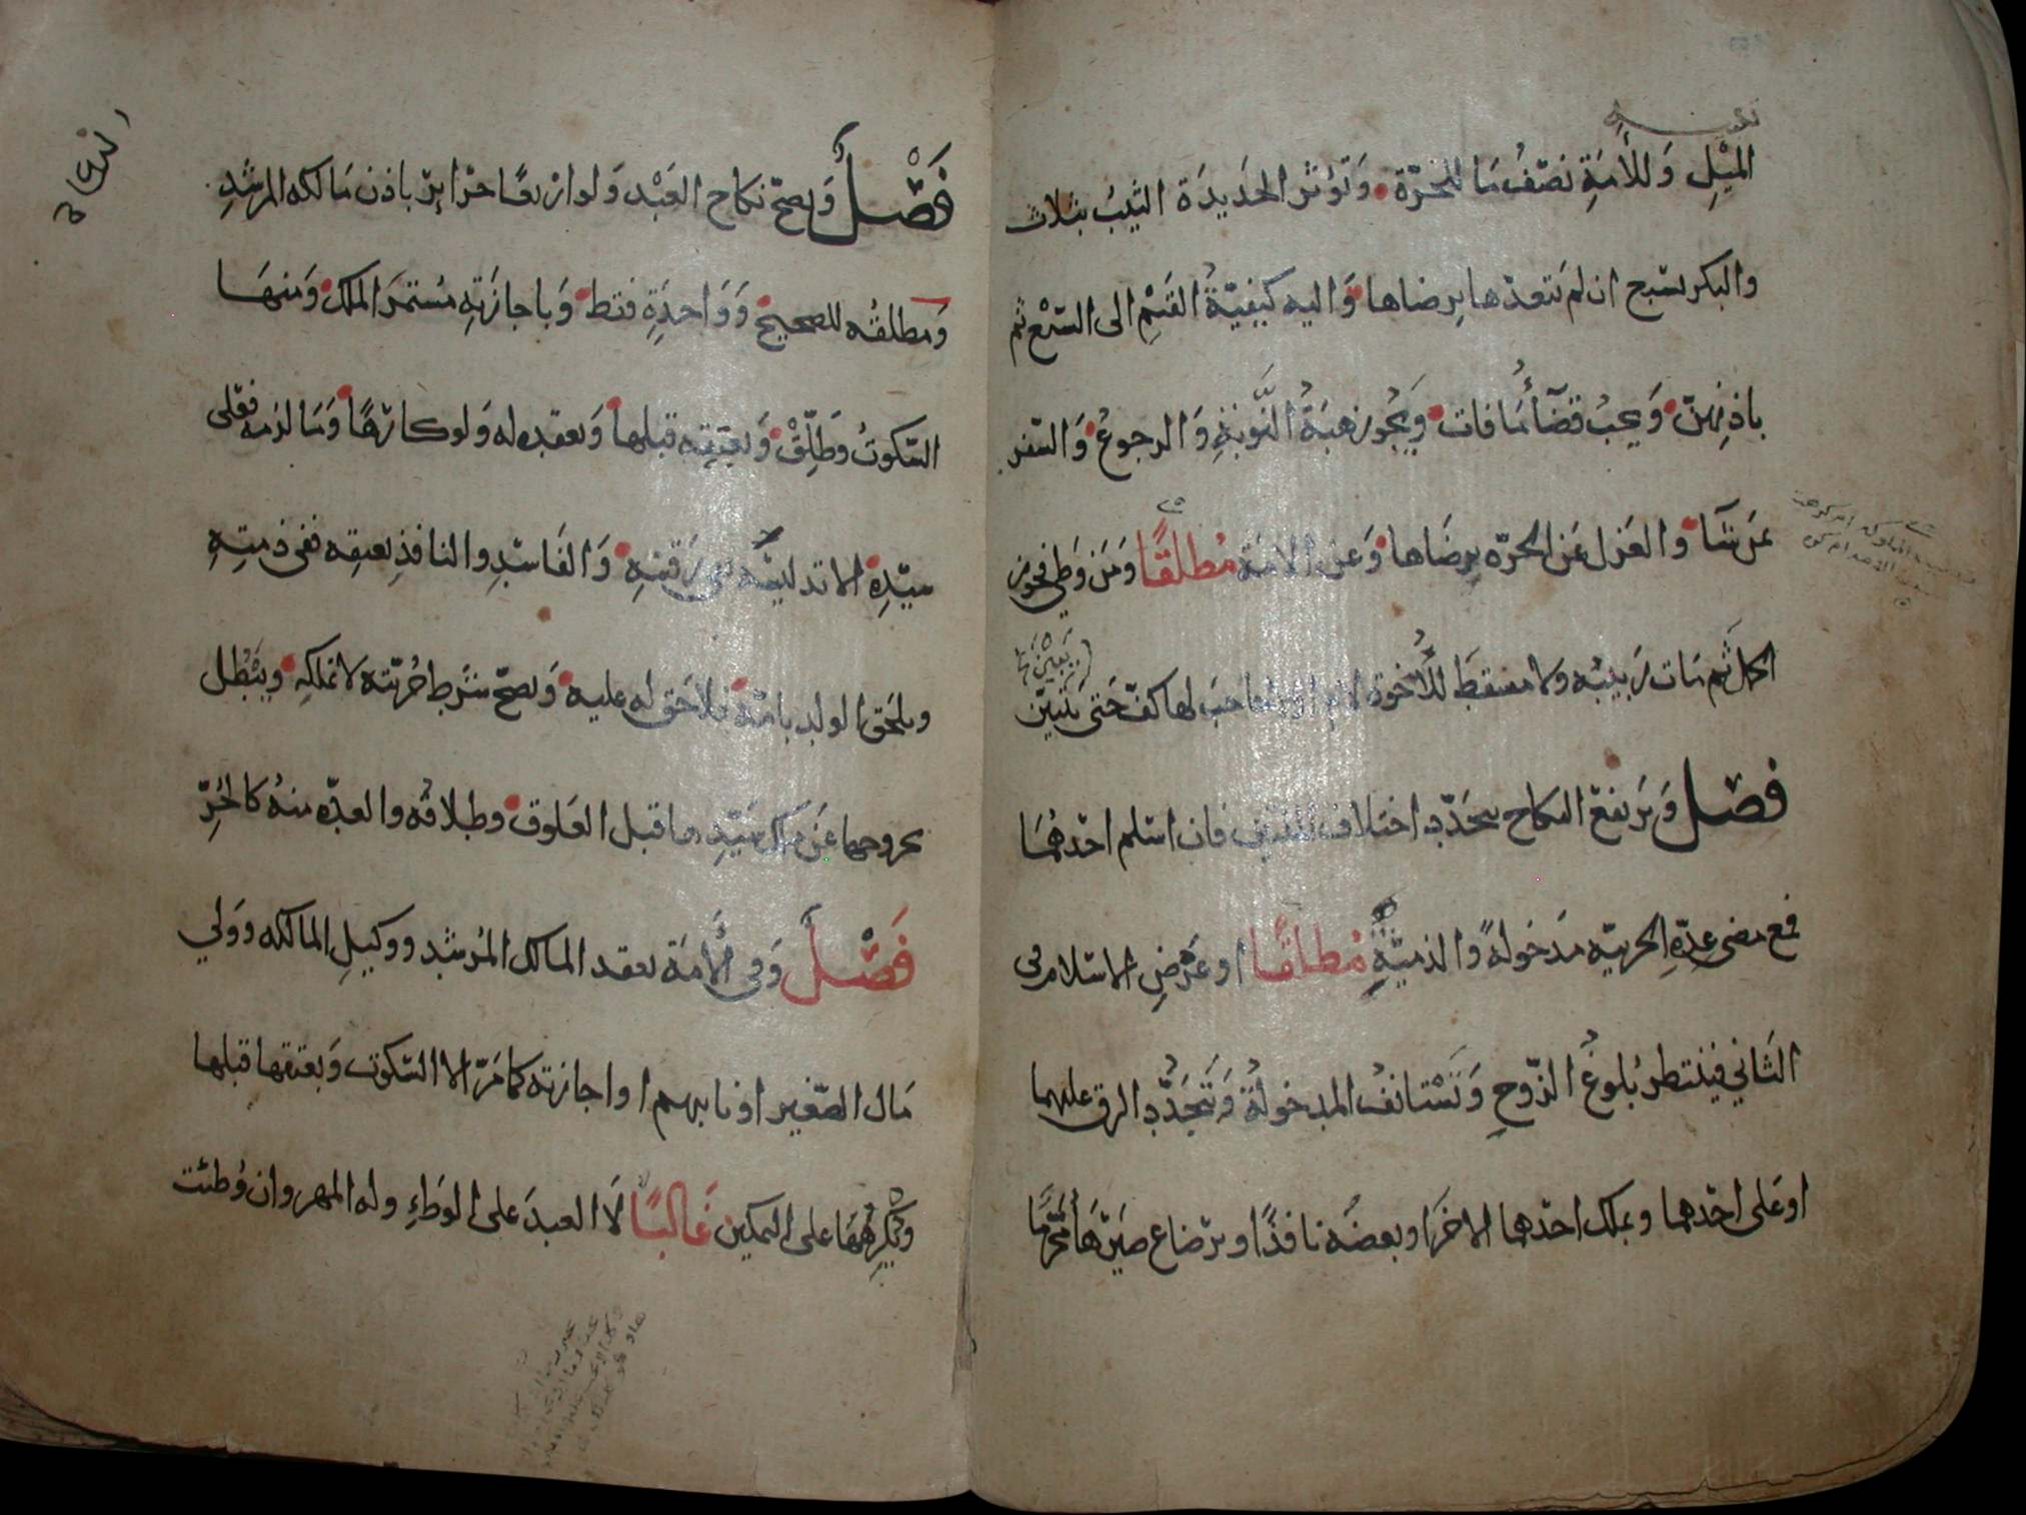 الميل وللأمة نصف ما للحرة وتؤثر الجديدة الثيب بثلاث
والبكر بسبع ان لم يتعدها برضاها واليه كيفية القسم الى السبع ثم
باذنهن ويجب قضاء ما فات ويجوز هبة النوبة والرجوع والسفر
بمن شآ والعزل عن الحرة برضاها وعن الامة مطلقًا ومن وطي فجوز
الحمل ثم مات ربيبه ولا مسقط للأخوة لام حجب لها كف حتى يتبين
فصل ويرتفع النكاح بتجدد اختلاف الملتين فان اسلم احدهما
فمع مضي عدة الحربية مدخولة والذمية مطلقًا او عرض الاسلام في
الثاني فينتظر بلوغ الزوج وتستانف المدخولة وبتجدد الرق عليهما
او على احدهما وبملك احدهما الاخر او بعضه نافذًا وبرضاع صيرها محرما
فصل ويصح نكاح العبد ولو اربعًا حرائر باذن مالكه المرشد
ومطلقه للصحيح وواحدة فقط وباجازته مستمر الملك ومنها
السكوت وطلق وبعتقه قبلها وبعقده له ولو كارهًا وما لزمه فعلى
سيده الا تدليسه ففي رقبته والفاسد والنافذ بعتقه ففي ذمته
ويلحق الولد بامه فلا حق له عليه ويصح شرط حريته لا تملكه ويبطل
بخروجها عن ملك سيدها قبل العلوق وطلاقه والعدة منه كالحر
فصل وفي الأمة بعقد المالك المرشد ووكيل المالكه وولي
مال الصغير او نايبهم او اجازته كما مر الا السكوت وبعتقها قبلها
وتكرهها على التمكين غالبًا لا العبد على الوطء وله المهر وان وطئت